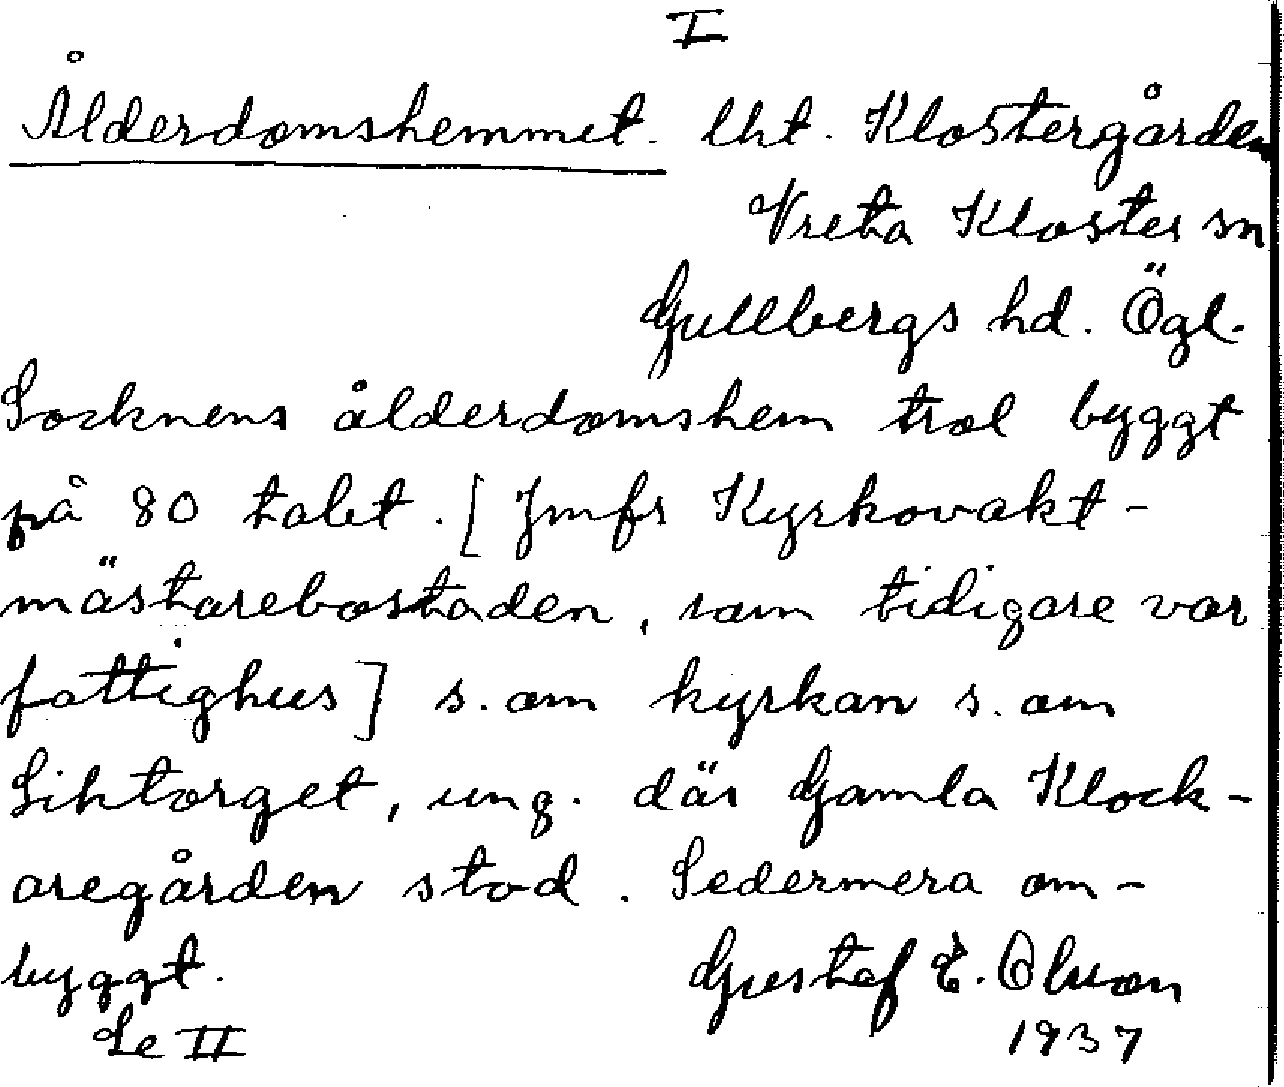 I
Ålderdomshemmet. lht. Klostergården
Vreta Kloster sn
Gullbergs hd. Ögl.
Socknens ålderdomshem trol byggt
på 80 talet. [Jmfr Kyrkovakt-
mästarebostaden, som tidigare var
fattighus] s. om kyrkan s. om
Liktorget, ung. där Gamla Klock-
aregården stod. Sedermera om-
byggt. Gustaf E. Olsson
Se II 1937